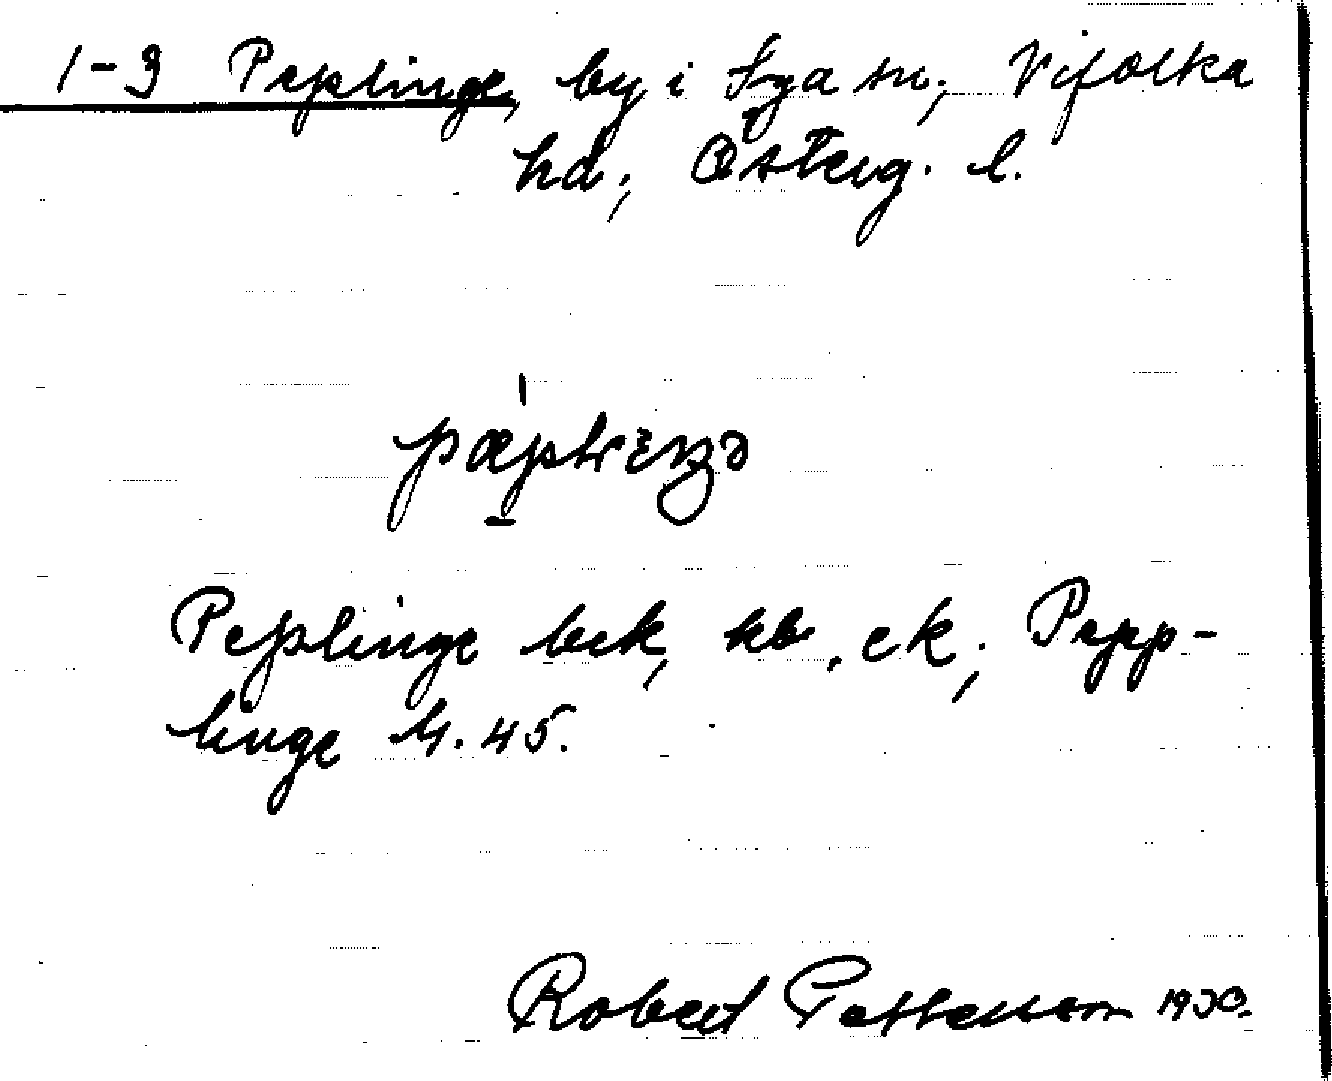 1-3 Peplinge, by i Sya sn, Vifolka
hd, Österg. l.
pæplıŋə
Peplinge bek, kb, ek, Pepp-
linge M. 45.
Robert Pettersson 1930.